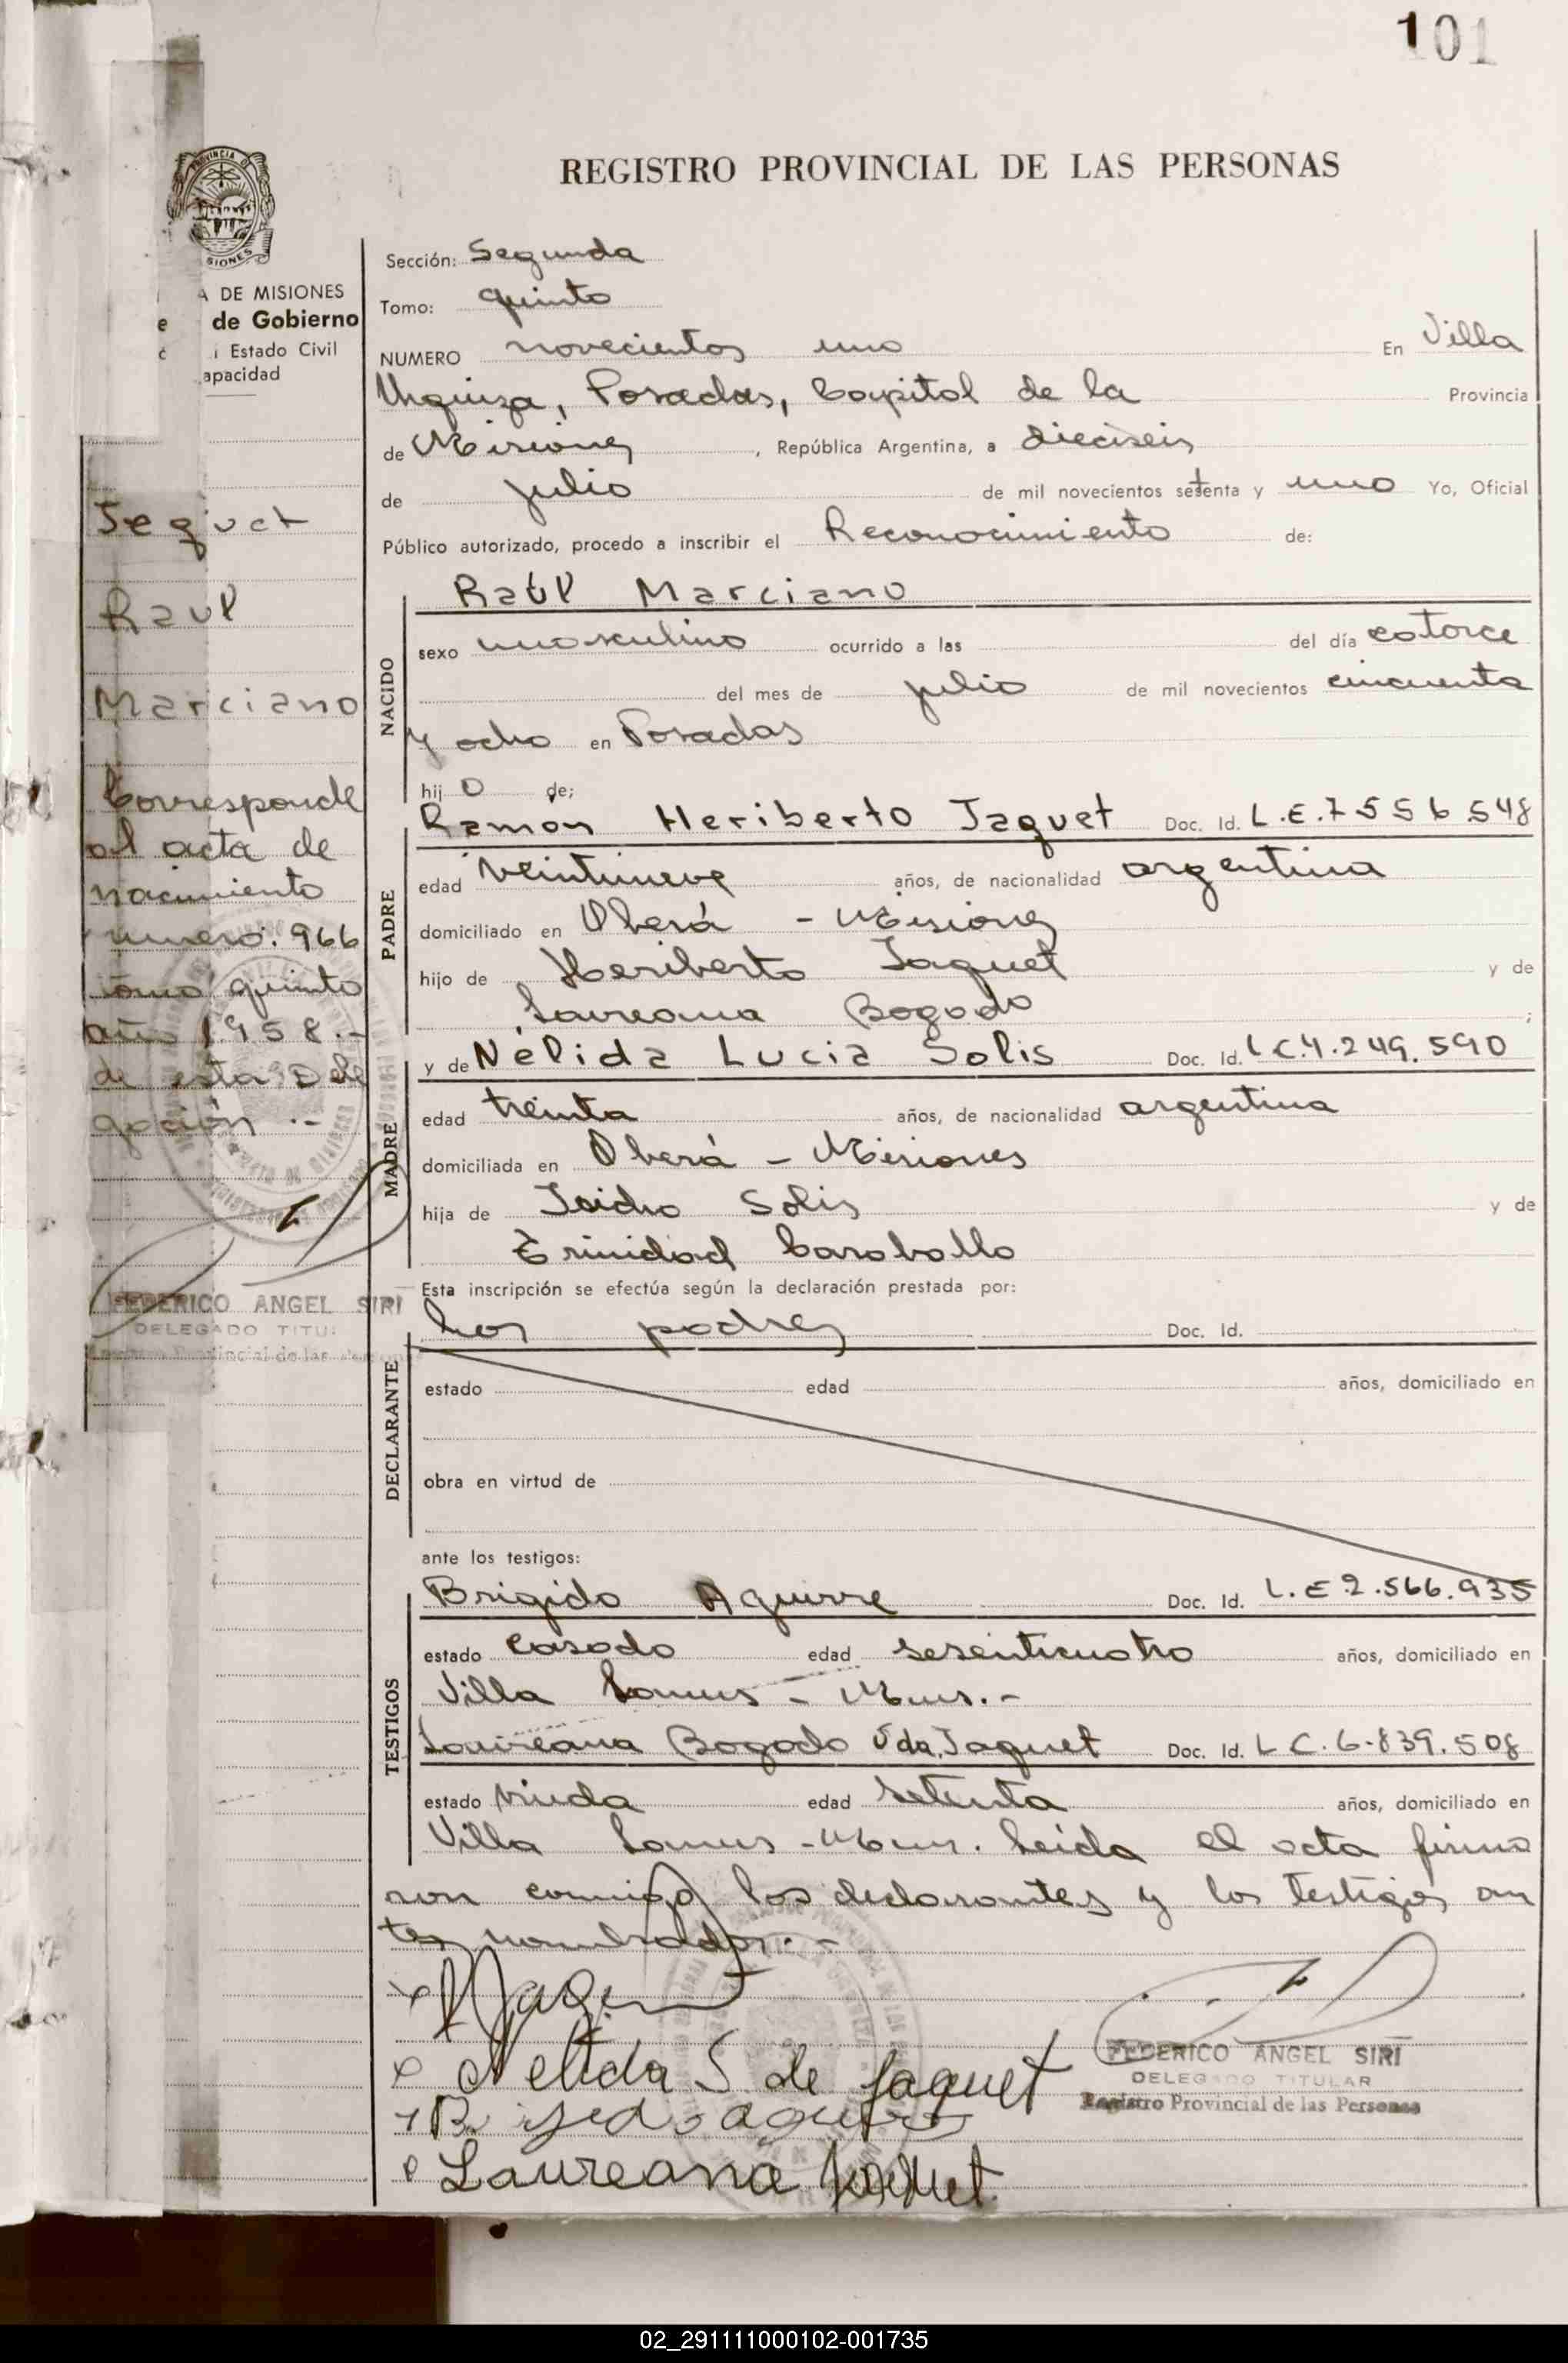 101
REGISTRO PROVINCIAL DE LAS PERSONAS
PROVINCIA D
SIONES
A DE MISIONES
de Gobierno
Estado Civil
apacidad
Jaquet
Raul
Marciano
Corresponde
al acta de
nacimiento
numero: 966
tomo quinto
año 1958.-
de esta Dele
gación.-
FEDERICO ANGEL SIRI
DELEGADO TITU
Provincial de las
Sección: Segunda
Tomo: quinto
NUMERO novecientos uno En Villa
Urquiza, Posadas, Capital de la Provincia
de Misiones, República Argentina, a dieciseis
de julio de mil novecientos setenta y uno Yo, Oficial
Público autorizado, procedo a inscribir el Reconocimiento de:
Raúl Marciano
NACIDO
sexo masculino ocurrido a las del día catorce
del mes de julio de mil novecientos cincuenta
y ocho en Posadas
hijo de;
PADRE
Ramón Heriberto Jaquet Doc. Id. L.E.7556548
edad veintinueve años, de nacionalidad argentina
domiciliado en Oberá - Misiones
hijo de Heriberto Jaquet y de
Laureana Bogado ;
MADRE
y de Nélida Lucia Solis Doc. Id. LC.4.249.590
edad treinta años, de nacionalidad argentina
domiciliada en Oberá - Misiones
hija de Isidro Solis y de
Trinidad Caraballo
Esta inscripción se efectúa según la declaración prestada por:
los padres Doc. Id.
DECLARANTE
estado edad años, domiciliado en
obra en virtud de
ante los testigos:
TESTIGOS
Brigido Aguirre Doc. Id. L.E 2.566.935
estado casado edad sesenticuatro años, domiciliado en
Villa Lanus - Mnes.-
Laureana Bogado Vda. Jaquet Doc. Id. L C. 6.839.508
estado viuda edad setenta años, domiciliado en
Villa Lanus - Mnes. Leida el acta firma
ron conmigo los declarantes y los testigos an
tes nombrados.-
Nelida S. de Jaquet
Laureana Jaquet
FEDERICO ANGEL SIRI
DELEGADO TITULAR
Registro Provincial de las Personas
02_291111000102-001735